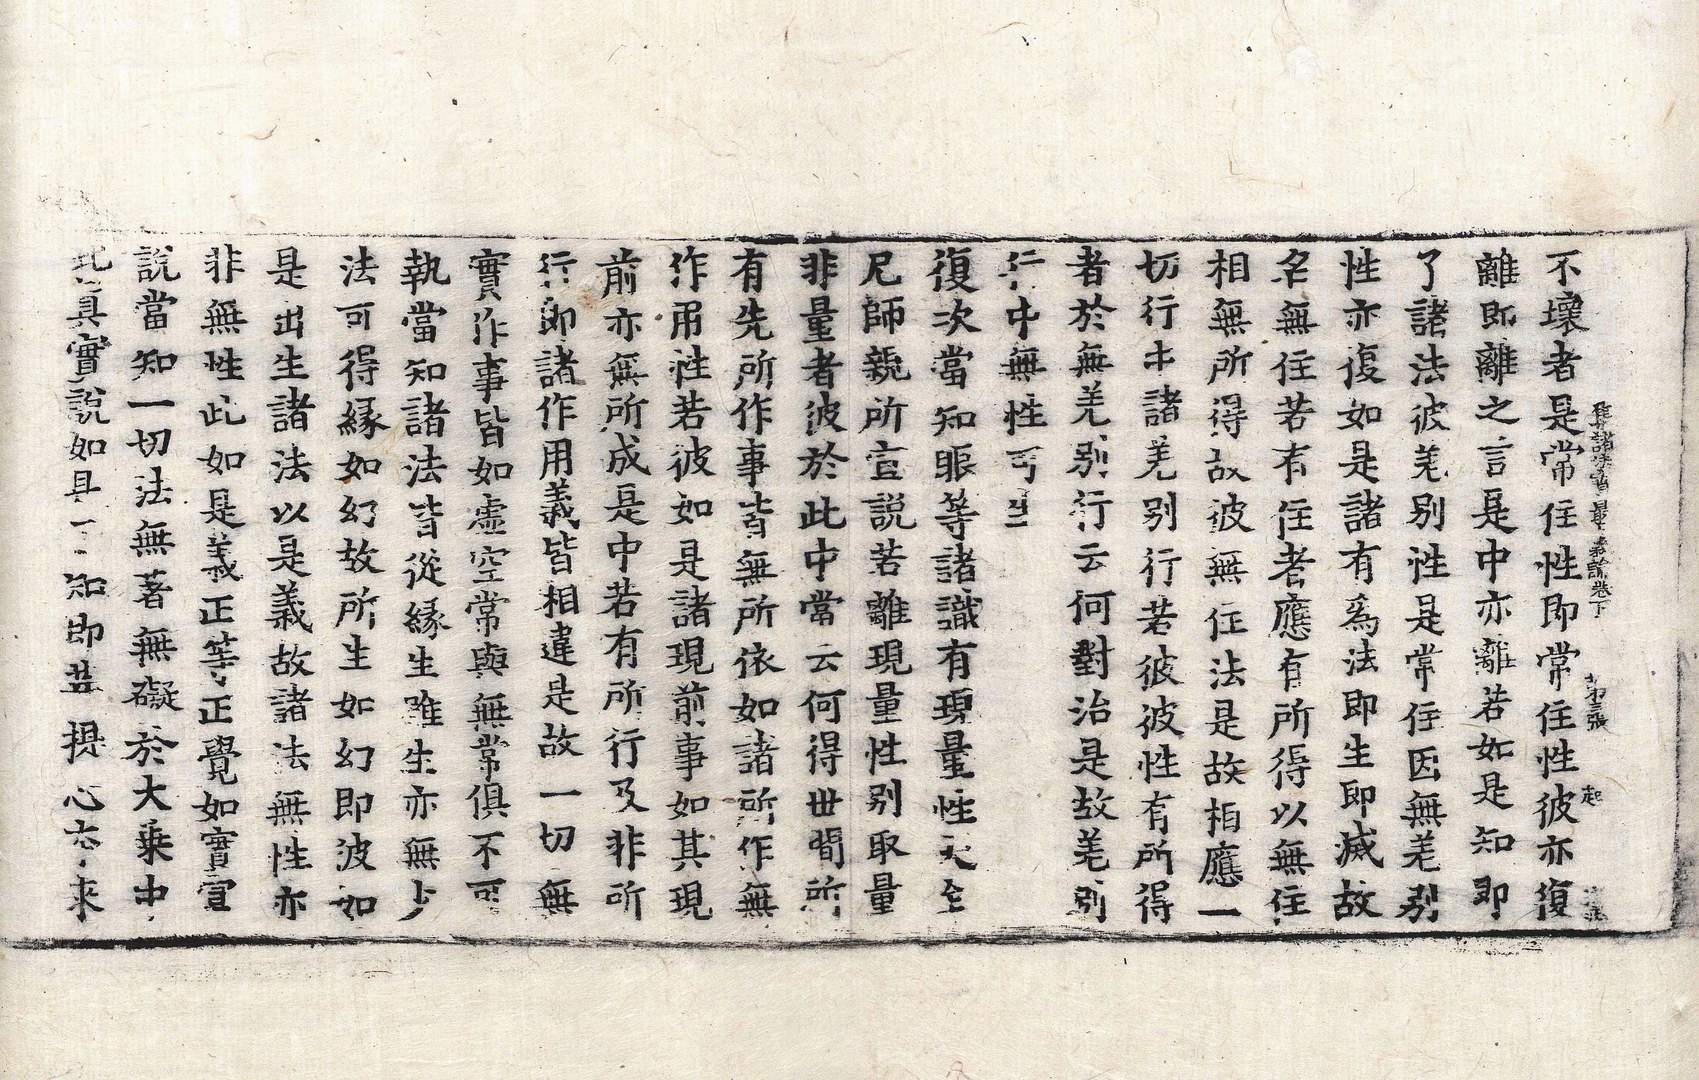 集諸法寶最上義論卷下 第三張 起
不壞者是常住性即常住性彼亦復
離即離之言是中亦離若如是知即
了諸法彼差別性是常住因無差別
性亦復如是諸有為法即生即滅故
名無住若有住者應有所得以無住
相無所得故彼無住法是故相應一
切行中諸差別行若彼彼性有所得
者於無差別行云何對治是故差別
行中無性可生
復次當知眼等諸識有現量性大金
尼師親所宣說若離現量性別取量
非量者彼於此中當云何得世間所
有先所作事皆無所依如諸所作無
作用性若彼如是諸現前事如其現
前亦無所成是中若有所行及非所
行即諸作用義皆相違是故一切無
實作事皆如虛空常與無常俱不可
執當知諸法皆從緣生雖生亦無少
法可得緣如幻故所生如幻即彼如
是出生諸法以是義故諸法無性亦
非無性此如是義正等正覺如實宣
說當知一切法無著無礙於大乘中
此真實說如是了知即菩提心亦來